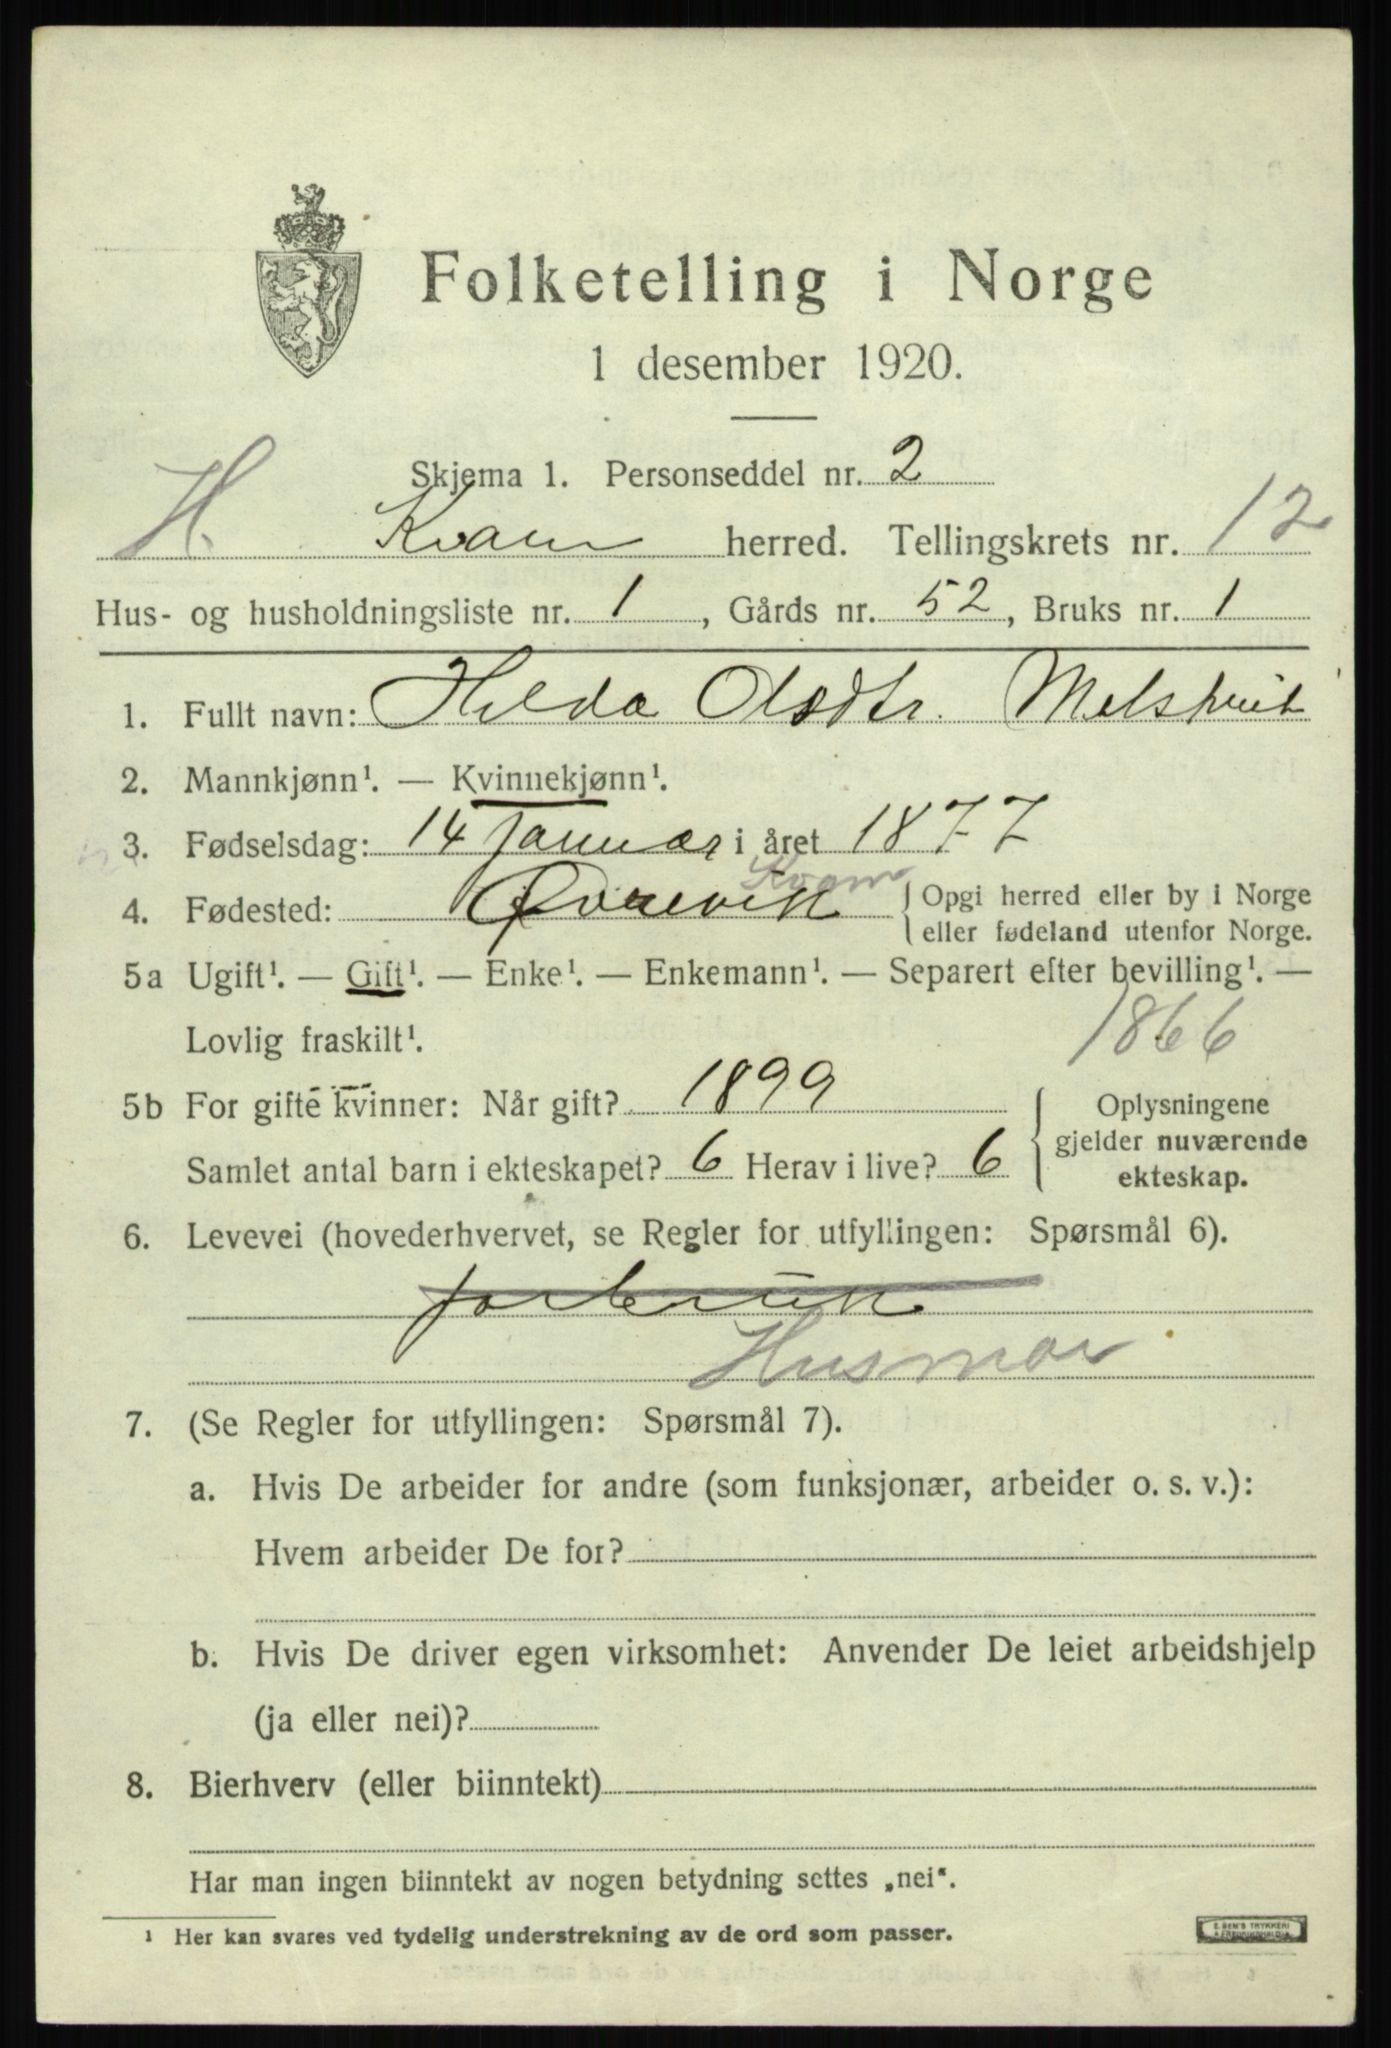 Folketelling i Norge
1 desember 1920.
Skjema 1. Personseddel nr. 2
H. Kvam herred. Tellingskrets nr. 12
Hus- og husholdningsliste nr. 1, Gårds nr. 52, Bruks nr. 1
1. Fullt navn: Hilda Olsdtr.
2. Mannkjønn¹. — Kvinnekjønn¹.
3. Fødselsdag: 14 januar i året 1877
Kvam
4. Fødested: Øvrevik { Opgi herred eller by i Norge
eller fødeland utenfor Norge.
5a Ugift¹. — Gift¹. — Enke¹. — Enkemann¹. — Separert efter bevilling¹. —
Lovlig fraskilt¹.
1866
5b For gifte kvinner: Når gift? 1899
Samlet antal barn i ekteskapet? 6 Herav i live? 6
{ Oplysningene
gjelder nuværende
ekteskap.
6. Levevei (hovederhvervet, se Regler for utfyllingen: Spørsmål 6).
jorbruk
Husmor
7. (Se Regler for utfyllingen: Spørsmål 7).
a. Hvis De arbeider for andre (som funksjonær, arbeider o. s. v.):
Hvem arbeider De for?
b. Hvis De driver egen virksomhet: Anvender De leiet arbeidshjelp
(ja eller nei)?
8. Bierhverv (eller biinntekt)
Har man ingen biinntekt av nogen betydning settes „nei“.
¹ Her kan svares ved tydelig understrekning av de ord som passer.